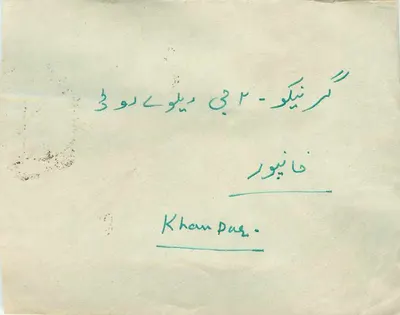 گرنیکو - ۲ جی ریلوے روڈ
خانپور
Khanpur.